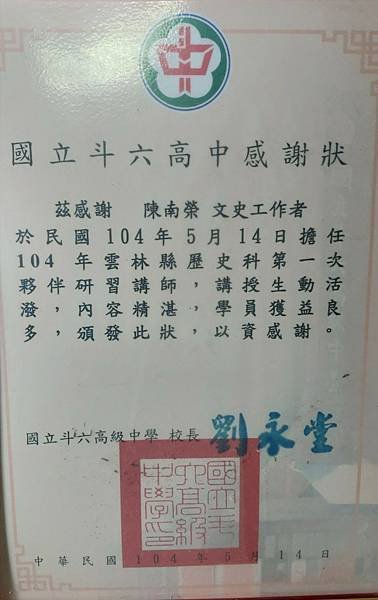 國立斗六高中感謝狀
茲感謝 陳南榮 文史工作者
於民國104年5月14日擔任
104 年雲林縣歷史科第一次
夥伴研習講師，講授生動活
潑，內容精湛，學員獲益良
多，頒發此狀，以資感謝。
國立斗六高級中學 校長 劉永堂
國立斗六高級中學印
中華民國 104 年 5 月 14 日